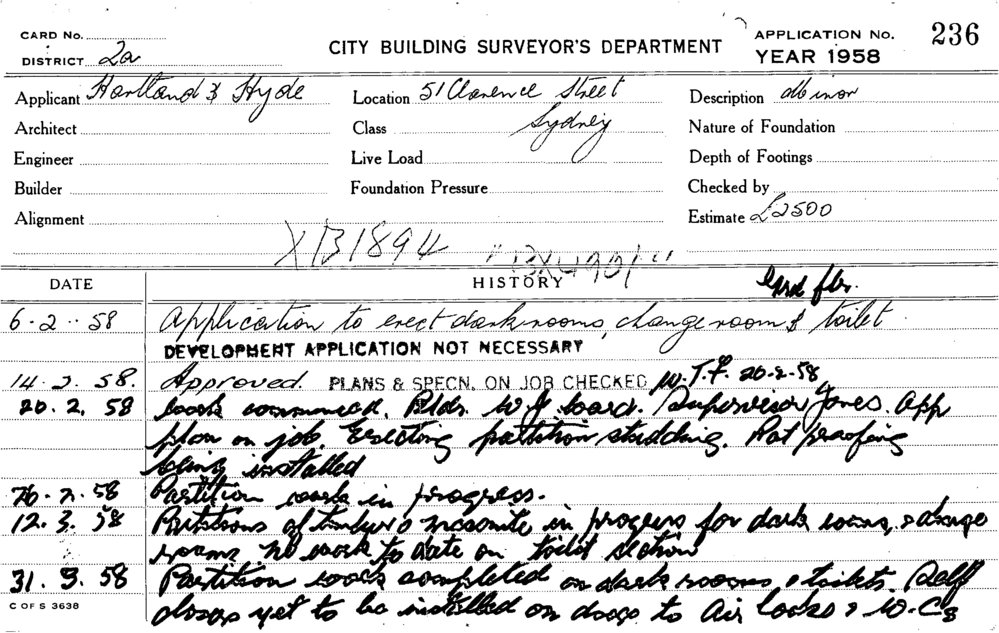 CARD No.
DISTRICT 2a
CITY BUILDING SURVEYOR'S DEPARTMENT
APPLICATION No. 236
YEAR 1958
Applicant Hartland & Hyde
Location 51 Clarence Street
Sydney
Description
Architect
Class
Nature of Foundation
Engineer
Live Load
Depth of Footings
Builder
Foundation Pressure
Checked by
Alignment
Estimate £2500
XB1894
"BX4901"
DATE
HISTORY
flr.
6.2.58 Application to erect darkrooms, change room & toilet
DEVELOPMENT APPLICATION NOT NECESSARY
14.2.58. Approved. PLANS & SPECN. ON JOB CHECKED W.T.F. 20-2-58
20.2.58 work commenced. Bldr. board. Supervisor Jones. App
plan on job. Erecting partition studding. Rat proofing
being installed
26.2.58 Partition work in progress.
12.3.58 Partitions of timber & masonite in progress for dark rooms, & change
rooms no work to date on toilet section
31.3.58 Partition work completed on dark rooms, & toilets. Self
closers yet to be installed on doors to air locks & W.Cs
C OF S 3638